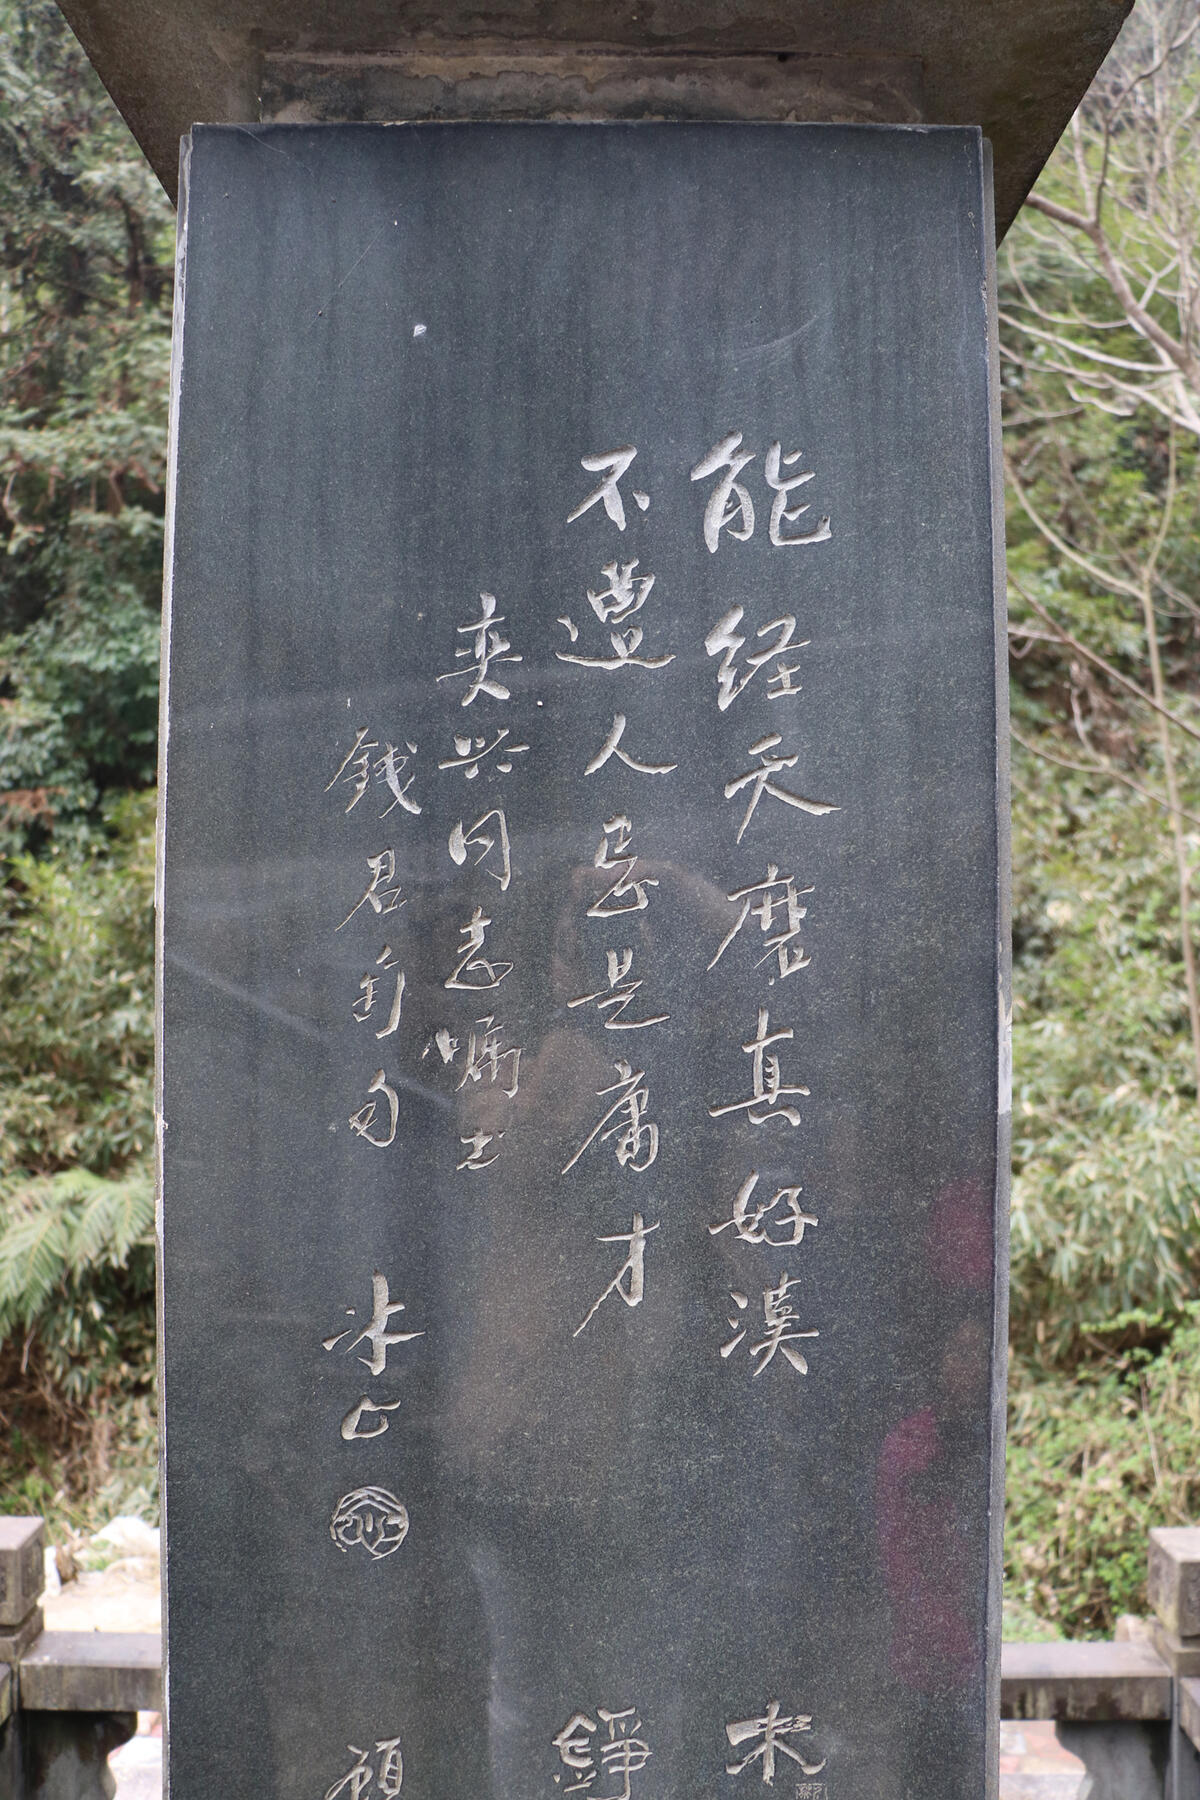 能经天磨真好漢
不遭人忌是庸才
奕兴同志嘱书
錢君匋句 冰心
錚